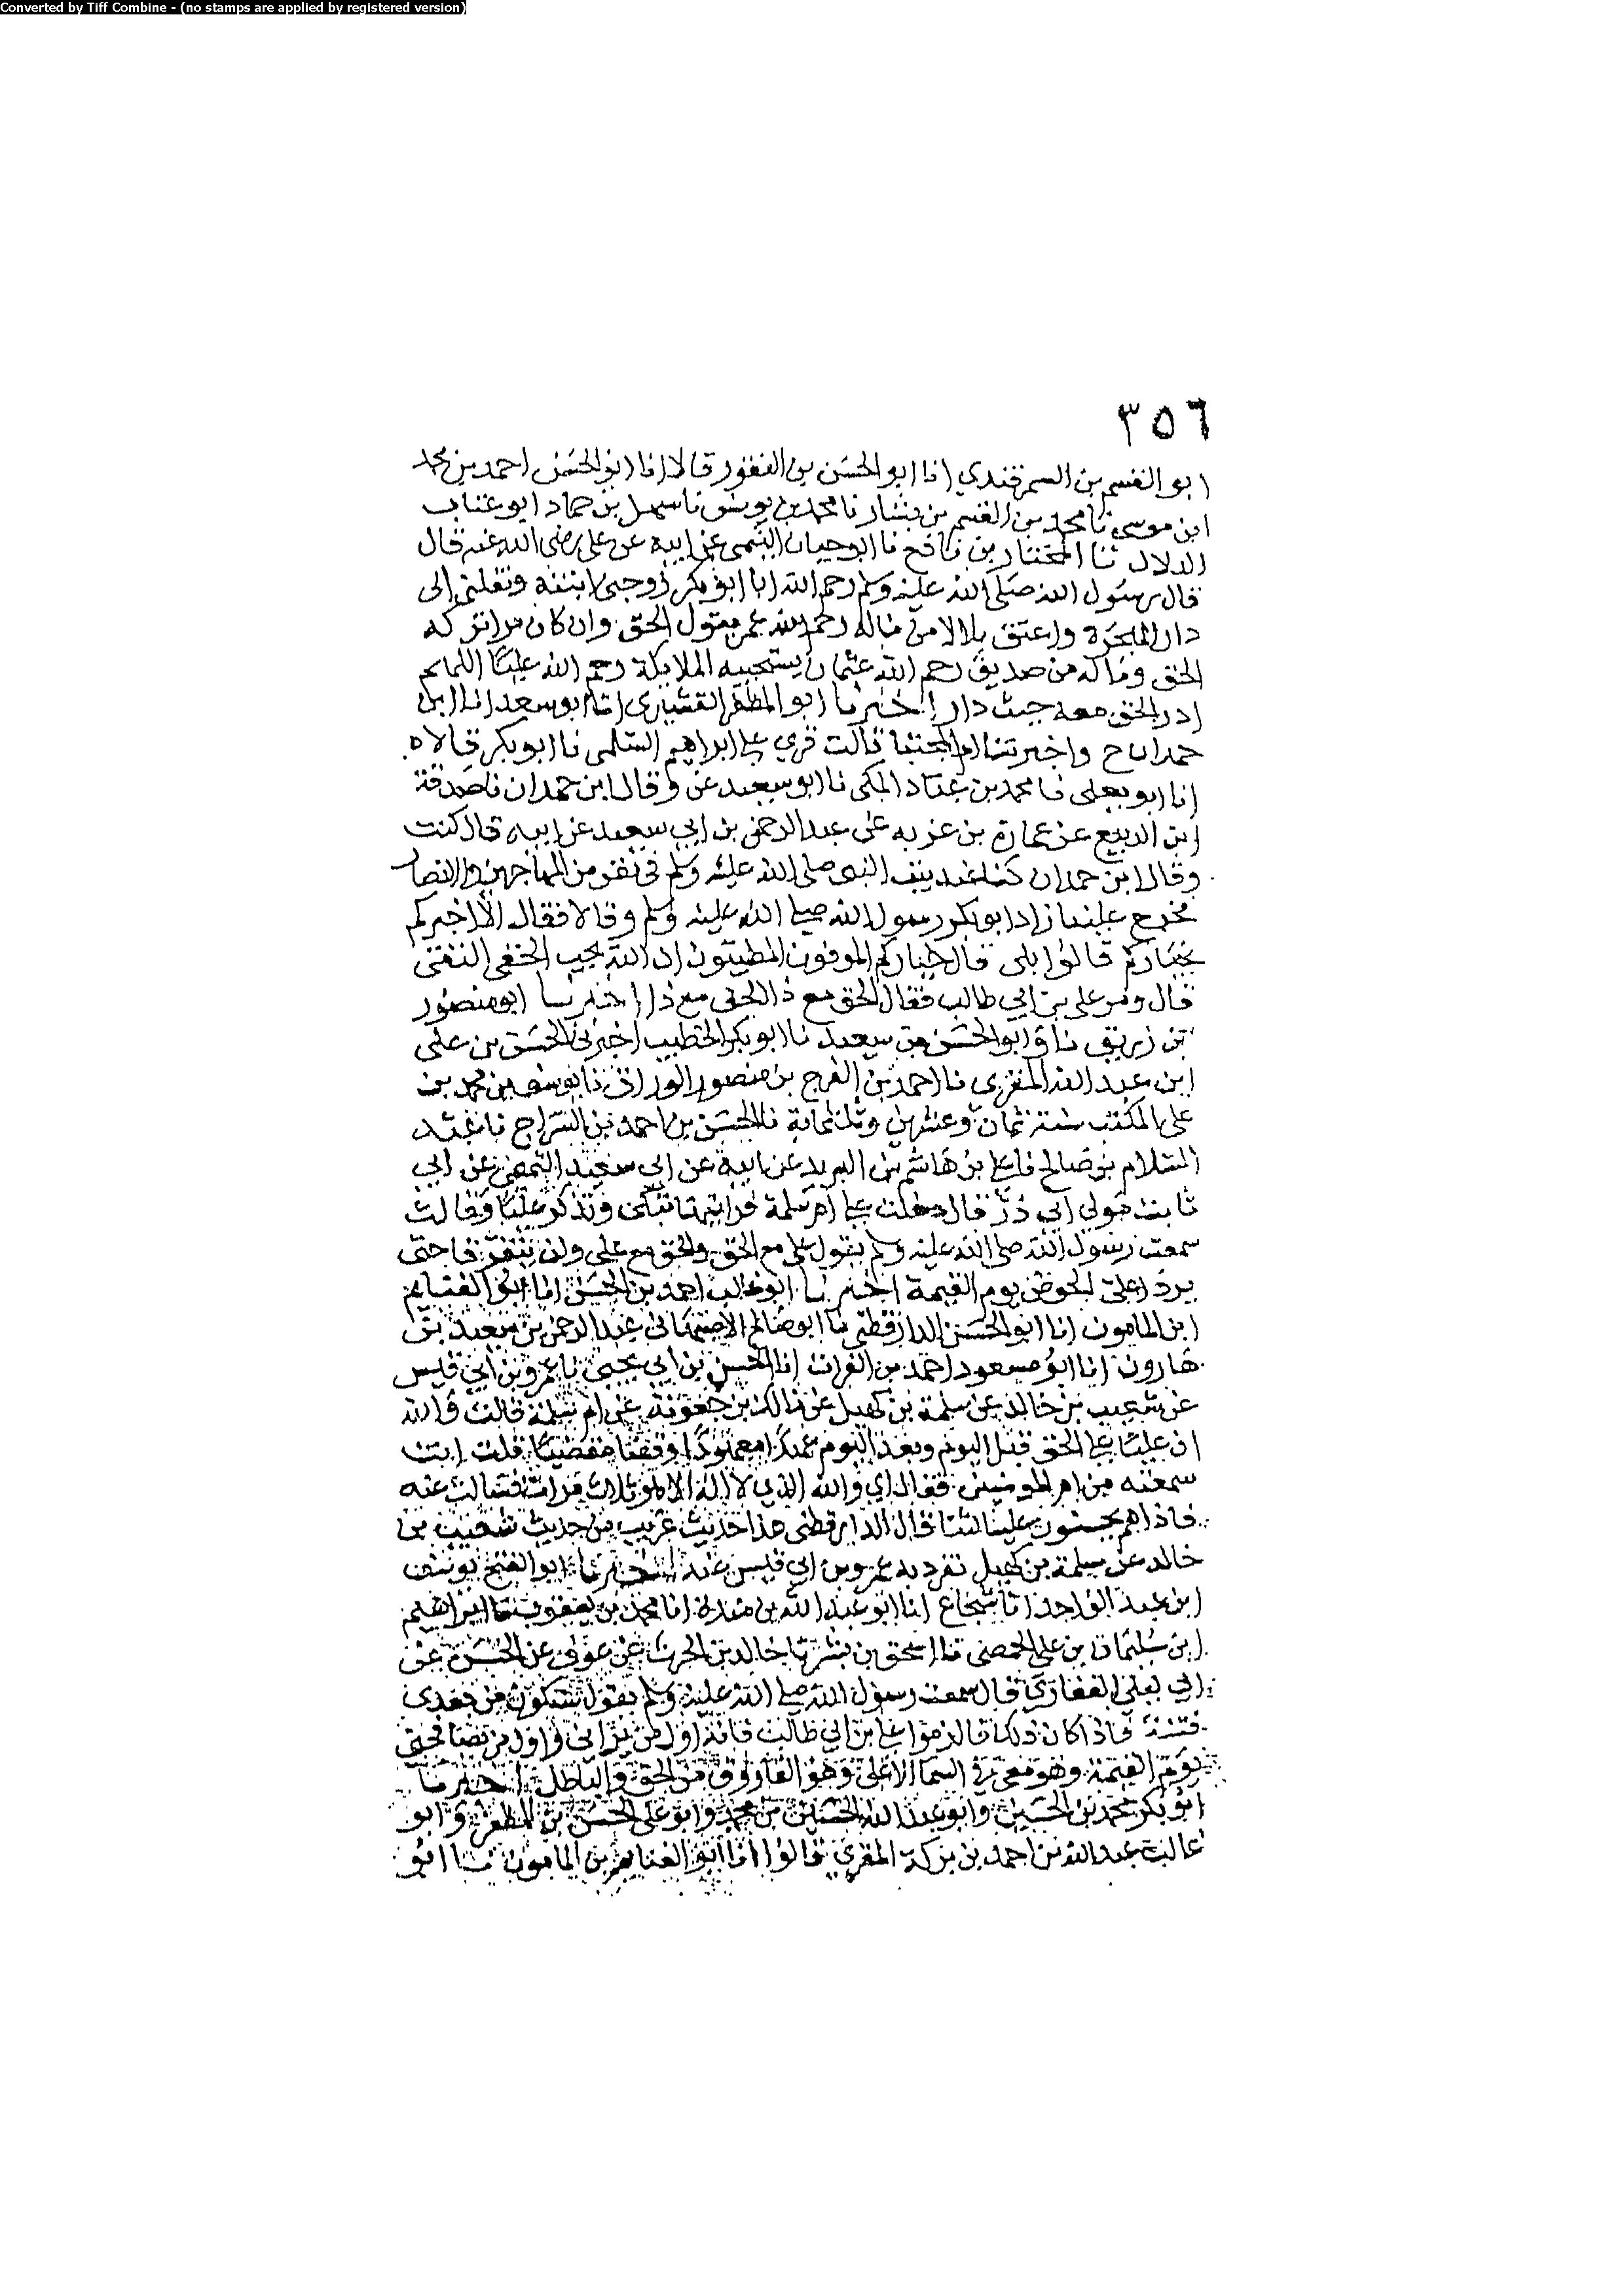 Converted by Tiff Combine - (no stamps are applied by registered version)
٣٥٦
ابو القسم بن السمرقندي انا ابو الحسن بن النقور قالا انا ابو الحسن احمد بن محمد
ابن موسى نا محمد بن القسم بن بشار نا محمد بن يونس نا سهل بن حماد ابو عتاب
الدلال نا المختار بن نافع نا ابو حيان التيمي عن ابيه عن علي رضي الله عنه قال
قال رسول الله صلى الله عليه وسلم رحم الله ابا بكر زوجني ابنته ونقلني الى
دار الهجرة واعتق بلالا من ماله رحم الله عمر يقول الحق وان كان مرا تركه
الحق وما له من صديق رحم الله عثمان يستحييه الملايكة رحم الله عليا اللهم
ادر الحق معه حيث دار اخبرنا ابو المظفر القشيري انا ابو سعد انا ابن
حمدان ح واخبرتنا ام المجتبا قالت قري علي ابراهيم السلمي نا ابو بكر قالا
انا ابو يعلى نا محمد بن عباد المكي نا ابو سعيد عن وقال ابن حمدان نا صدقة
ابن الربيع عن عمارة بن غزيه عن عبد الرحمن بن ابي سعيد عن ابيه قال كنت
وقال ابن حمدان كنا عند بيت النبي صلى الله عليه وسلم في نفر من المهاجرين والانصار
فخرج علينا زاد ابو بكر رسول الله صلى الله عليه وسلم وقالا فقال الا اخبركم
بخياركم قالوا بلى قال خياركم الموفون المطيبون ان الله يحب الخفي التقي
قال ومر علي بن ابي طالب فقال الحق مع ذا الحق مع ذا اخبرنا ابو منصور
بن زريق نا وابو الحسن بن سعيد نا ابو بكر الخطيب اخبرني الحسن بن علي
ابن عبد الله المقرى نا احمد بن الفرج بن منصور الوراق نا يوسف بن محمد بن
علي المكتب سنة ثمان وعشرين وثلثماية نا الحسن بن احمد بن السراج نا عبد
السلام بن صالح نا علي بن هاشم بن البريد عن ابيه عن ابي سعيد التميمي عن ابي
ثابت مولي ابي ذر قال دخلت علي ام سلمة فرايتها تبكي وتذكر عليا وقالت
سمعت رسول الله صلى الله عليه وسلم يقول علي مع الحق والحق مع علي ولن يتفرقا حتى
يردا على الحوض يوم القيمة اخبرنا ابو غالب احمد بن الحسن انا ابو الغنايم
ابن المامون انا ابو الحسن الدارقطني نا ابو صالح الاصبهاني عبد الرحمن بن سعيد بن
هارون انا ابو مسعود احمد بن الفرات انا الحسن بن ابي يحيى نا عمرو بن ابي قيس
عن شعيب بن خالد عن سلمة بن كهيل عن مالك بن جعونة عن ام سلمة قالت والله
ان عليا علي الحق قبل اليوم وبعد اليوم عهدا معهودا وقضا مقضيا قلت انت
سمعته من ام المومنين فقال اي والله الذي لا اله الا هو ثلاث مرات فسالت عنه
فاذا هم يحسنون عليه الثنا قال الدارقطني هذا حديث غريب من حديث شعيب بن
خالد عن سلمة بن كهيل تفرد به عمرو بن ابي قيس عنه اخبرنا ابو الفتح يوسف
ابن عبد الواحد انا شجاع انا ابو عبد الله بن منده انا محمد بن يعقوب نا ابراهيم
ابن سليمان بن علي الحمصي نا اسحق بن بشر نا خالد بن الحرث عن عوف عن الحسن عن
ابي ليلى الغفاري قال سمعت رسول الله صلى الله عليه وسلم يقول ستكون من بعدي
فتنة فاذا كان ذلك فالزموا علي بن ابي طالب فانه اول من يراني واول من يصافحني
يوم القيمة وهو معي في السما الاعلى وهو الفاروق بين الحق والباطل اخبرنا
ابو بكر محمد بن الحسين وابو عبد الله الحسين بن محمد وابو علي الحسن بن المظفر وابو
غالب عبد الله بن احمد بن بركة المقري قالوا انا ابو الغنايم بن المامون نا ابو